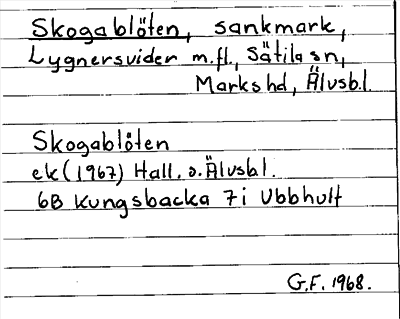 Skogablöten, sankmark,
Lygnersvider m.fl., Sätila sn,
Marks hd, Älvsb.l.
Skogablöten
ek (1967) Hall. o. Älvsb l.
6B Kungsbacka 7i Ubbhult
G.F. 1968.